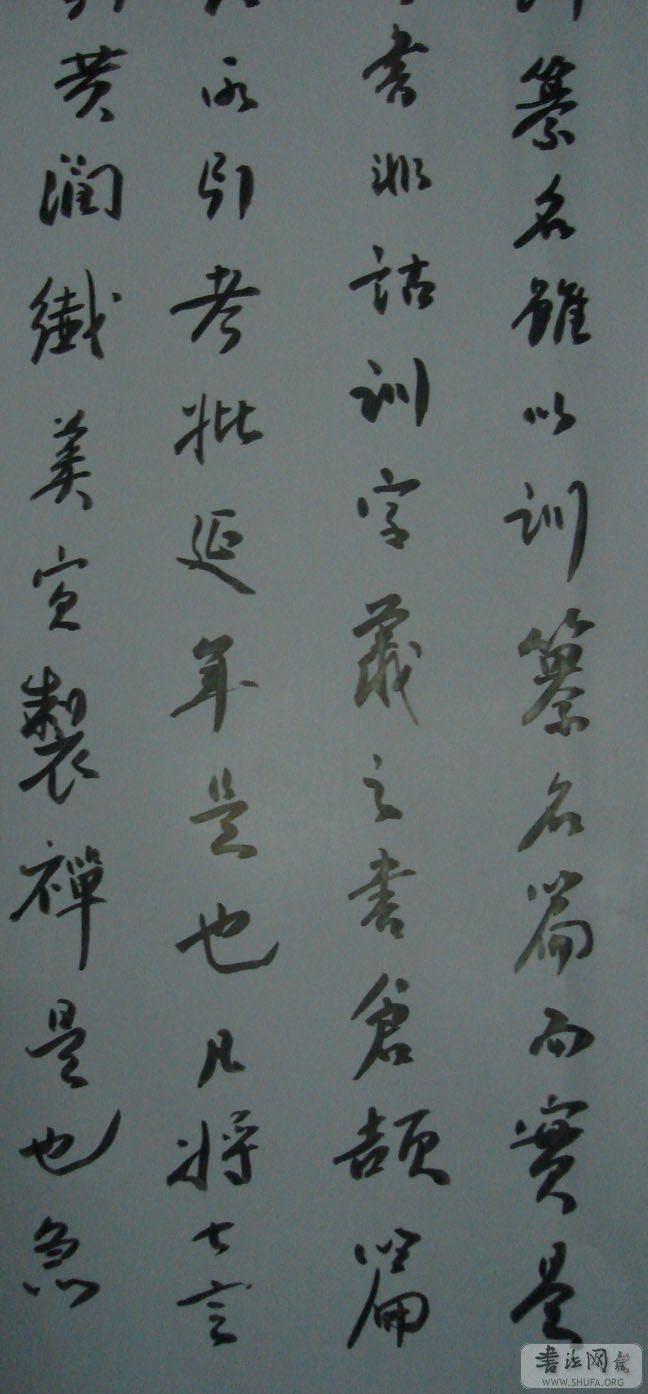 纂名雖以訓纂名篇而實是
書非詁訓字義之書倉頡篇
所引考妣延年是也凡將七言
黄潤纖美宜製禪是也急
書法网
WWW.SHUFA.ORG